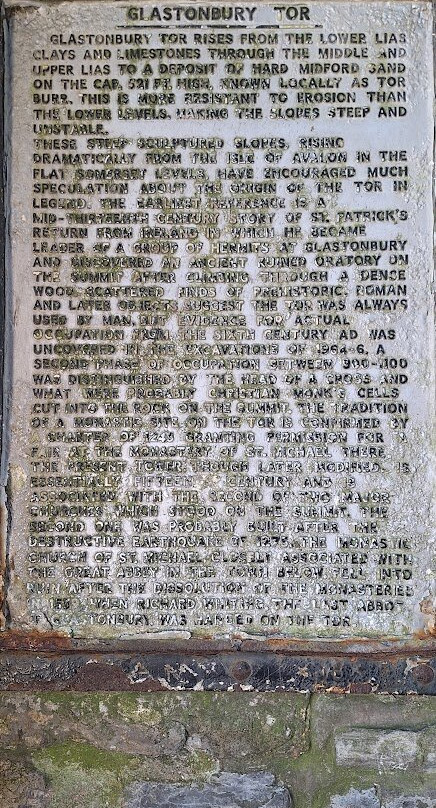 GLASTONBURY TOR
GLASTONBURY TOR RISES FROM THE LOWER LIAS
CLAYS AND LIMESTONES THROUGH THE MIDDLE AND
UPPER LIAS TO A DEPOSIT OF HARD MIDFORD SAND
ON THE CAP, 521 FT. HIGH, KNOWN LOCALLY AS TOR
BURR. THIS IS MORE RESISTANT TO EROSION THAN
THE LOWER LEVELS, MAKING THE SLOPES STEEP AND
UNSTABLE.
THESE STEEP SCULPTURED SLOPES, RISING
DRAMATICALLY FROM THE ISLE OF AVALON IN THE
FLAT SOMERSET LEVELS, HAVE ENCOURAGED MUCH
SPECULATION ABOUT THE ORIGIN OF THE TOR IN
LEGEND. THE EARLIEST REFERENCE IS A
MID-THIRTEENTH CENTURY STORY OF ST. PATRICK'S
RETURN FROM IRELAND IN WHICH HE BECAME
LEADER OF A GROUP OF HERMITS AT GLASTONBURY
AND DISCOVERED AN ANCIENT RUINED ORATORY ON
THE SUMMIT AFTER CLIMBING THROUGH A DENSE
WOOD. SCATTERED FINDS OF PREHISTORIC, ROMAN
AND LATER OBJECTS SUGGEST THE TOR WAS ALWAYS
USED BY MAN, BUT EVIDENCE FOR ACTUAL
OCCUPATION FROM THE SIXTH CENTURY AD WAS
UNCOVERED IN THE EXCAVATIONS OF 1964-6. A
SECOND PHASE OF OCCUPATION BETWEEN 900-1100
WAS DISTINGUISHED BY THE HEAD OF A CROSS AND
WHAT WERE PROBABLY CHRISTIAN MONK'S CELLS
CUT INTO THE ROCK ON THE SUMMIT. THE TRADITION
OF A MONASTIC SITE ON THE TOR IS CONFIRMED BY
A CHARTER OF 1243 GRANTING PERMISSION FOR A
FAIR AT THE MONASTERY OF ST. MICHAEL THERE.
THE PRESENT TOWER, THOUGH LATER MODIFIED, IS
ESSENTIALLY FIFTEENTH CENTURY AND IS
ASSOCIATED WITH THE SECOND OF TWO MAJOR
CHURCHES WHICH STOOD ON THE SUMMIT. THE
SECOND ONE WAS PROBABLY BUILT AFTER THE
DESTRUCTIVE EARTHQUAKE OF 1275. THE MONASTIC
CHURCH OF ST. MICHAEL CLOSELY ASSOCIATED WITH
THE GREAT ABBEY IN THE TOWN BELOW FELL INTO
RUIN AFTER THE DISSOLUTION OF THE MONASTERIES
IN 1539 WHEN RICHARD WHITING, THE LAST ABBOT
OF GLASTONBURY WAS HANGED ON THE TOR.